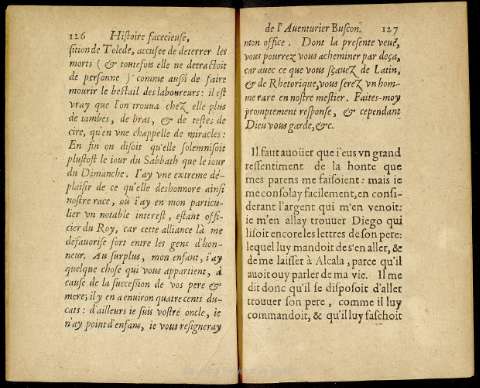 126 Histoire facecieuse,
sition de Tolede, accusee de deterrer les
morts (& toutesfois elle ne detractoit
de personne) comme aussi de faire
mourir le bestail des laboureurs: il est
vray que l'on trouua chez elle plus
de iambes, de bras, & de testes de
cire, qu'en vne chappelle de miracles:
En fin on disoit qu'elle solemnisoit
plustost le iour du Sabbath que le iour
du Dimanche. I'ay vne extreme dé-
plaisir de ce qu'elle deshonnore ainsi
nostre race, où i'ay en mon particu-
lier vn notable interest, estant offi-
cier du Roy, car cette alliance là me
défauorise fort entre les gens d'hon-
neur. Au surplus, mon enfant, i'ay
quelque chose qui vous appartient, à
cause de la succession de vos pere &
mere; il y en a enuiron quatre cents du-
cats: d'ailleurs ie suis vostre oncle, ie
n'ay point d'enfans, ie vous resigneray
de l'Auenturier Buscon. 127
mon office. Donc la presente veuë,
vous pourrez vous acheminer par deçà,
car auec ce que vous sçauez de Latin,
& de Rhetorique, vous serez vn hom-
me rare en nostre mestier. Faites-moy
promptement response, & cependant
Dieu vous garde, &c.
Il faut auoüer que i'eus vn grand
ressentiment de la honte que
mes parens me faisoient: mais ie
me consolay facilement, en consi-
derant l'argent qui m'en venoit:
ie m'en allay trouuer Diego qui
lisoit encore les lettres de son pere:
lequel luy mandoit de s'en aller, &
de me laisser à Alcala, parce qu'il
auoit ouy parler de ma vie. Il me
dit donc qu'il se disposoit d'aller
trouuer son pere, comme il luy
commandoit, & qu'il luy faschoit